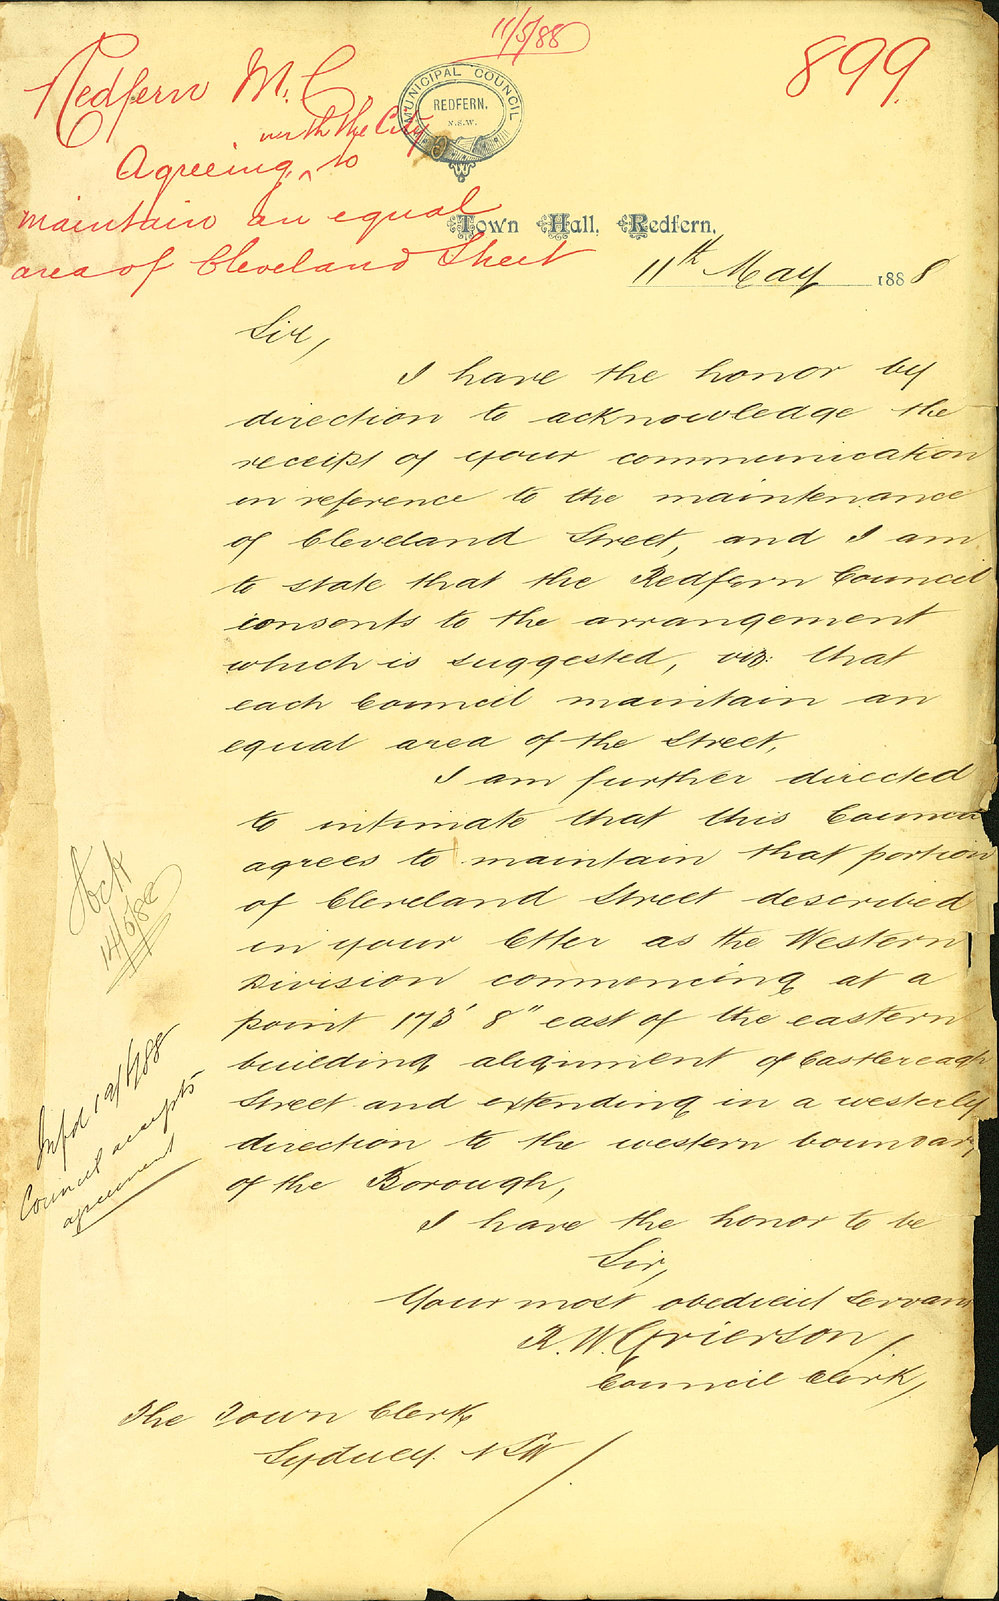 11/5/88
899
Redfern M.C.
with the City
Agreeing ^ to
maintain an equal
area of Cleveland Street
MUNICIPAL COUNCIL
REDFERN.
N.S.W.
Town Hall, Redfern,
11th May 1888
Sir,
I have the honor by
direction to acknowledge the
receipt of your communication
in reference to the maintenance
of Cleveland Street, and I am
to state that the Redfern Council
consents to the arrangement
which is suggested, viz: that
each Council maintain an
equal area of the Street,
I am further directed
to intimate that this Council
agrees to maintain that portion
of Cleveland Street described
in your letter as the Western
Division commencing at a
point 173' 8" east of the eastern
building alignment of Castlereagh
Street and extending in a westerly
direction to the western boundary
of the Borough,
I have the honor to be
Sir,
Your most obedient servant
R. W. Grierson,
Council Clerk,
The Town Clerk
Sydney NSW
14/5/88
Infd
Council accepts
agreement